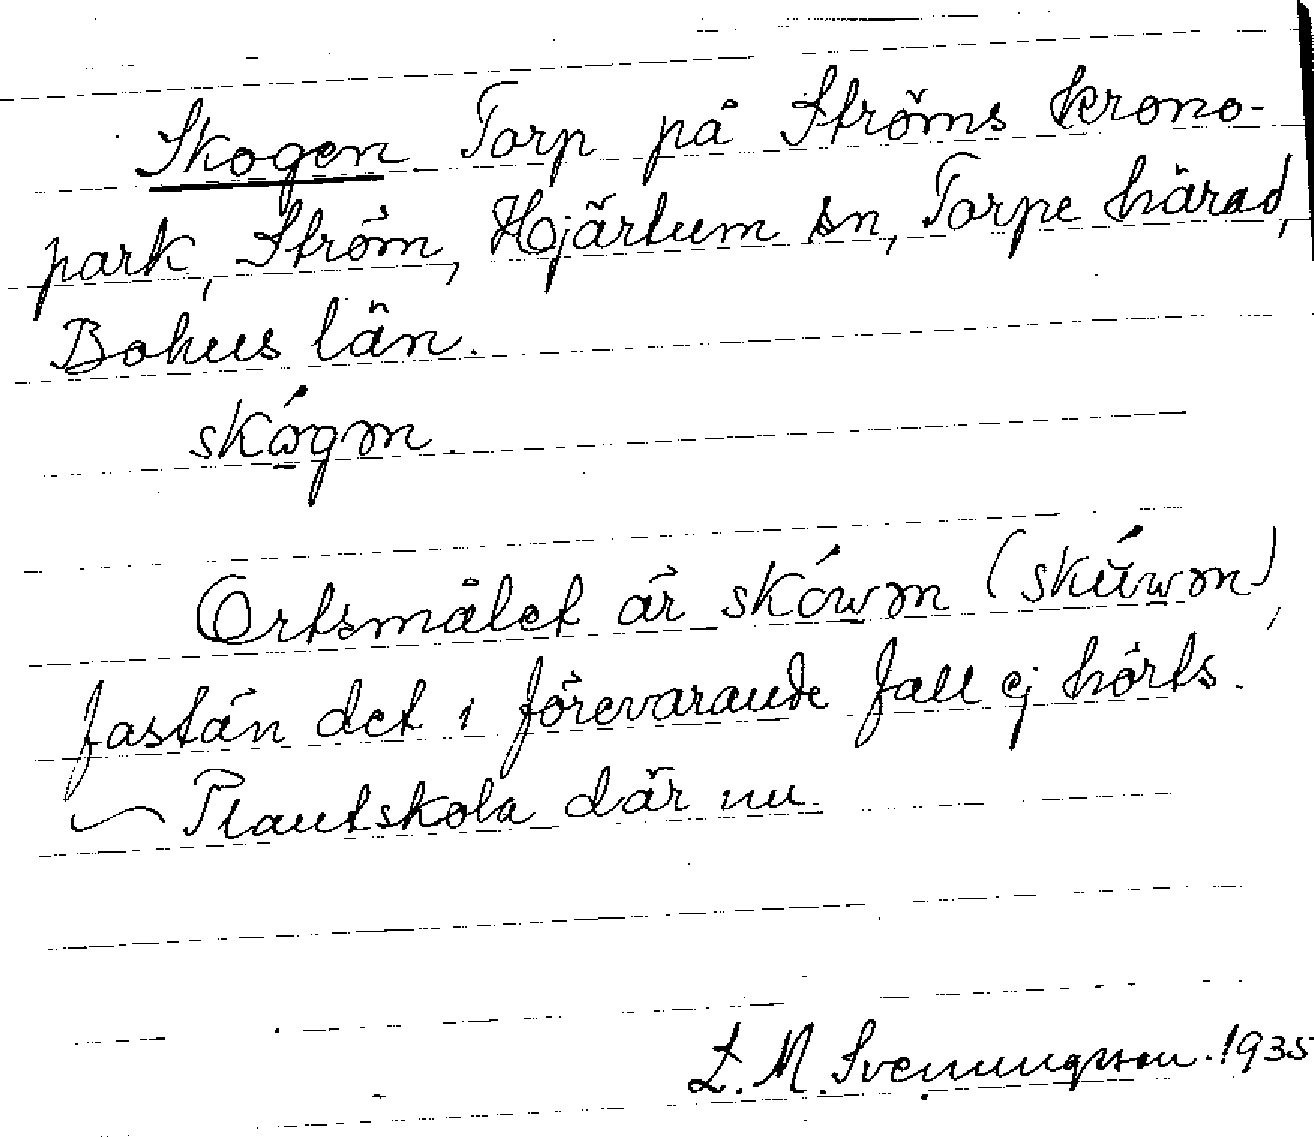 Skogen Torp på Ströms krono-
park, Ström, Hjärtum sn, Torpe härad,
Bohus län.
skógən.
Ortsmålet är skówən (skúwən),
fastän det i förevarande fall ej hörts.
~ Plantskola där nu.
L. M. Svenungsson. 1935